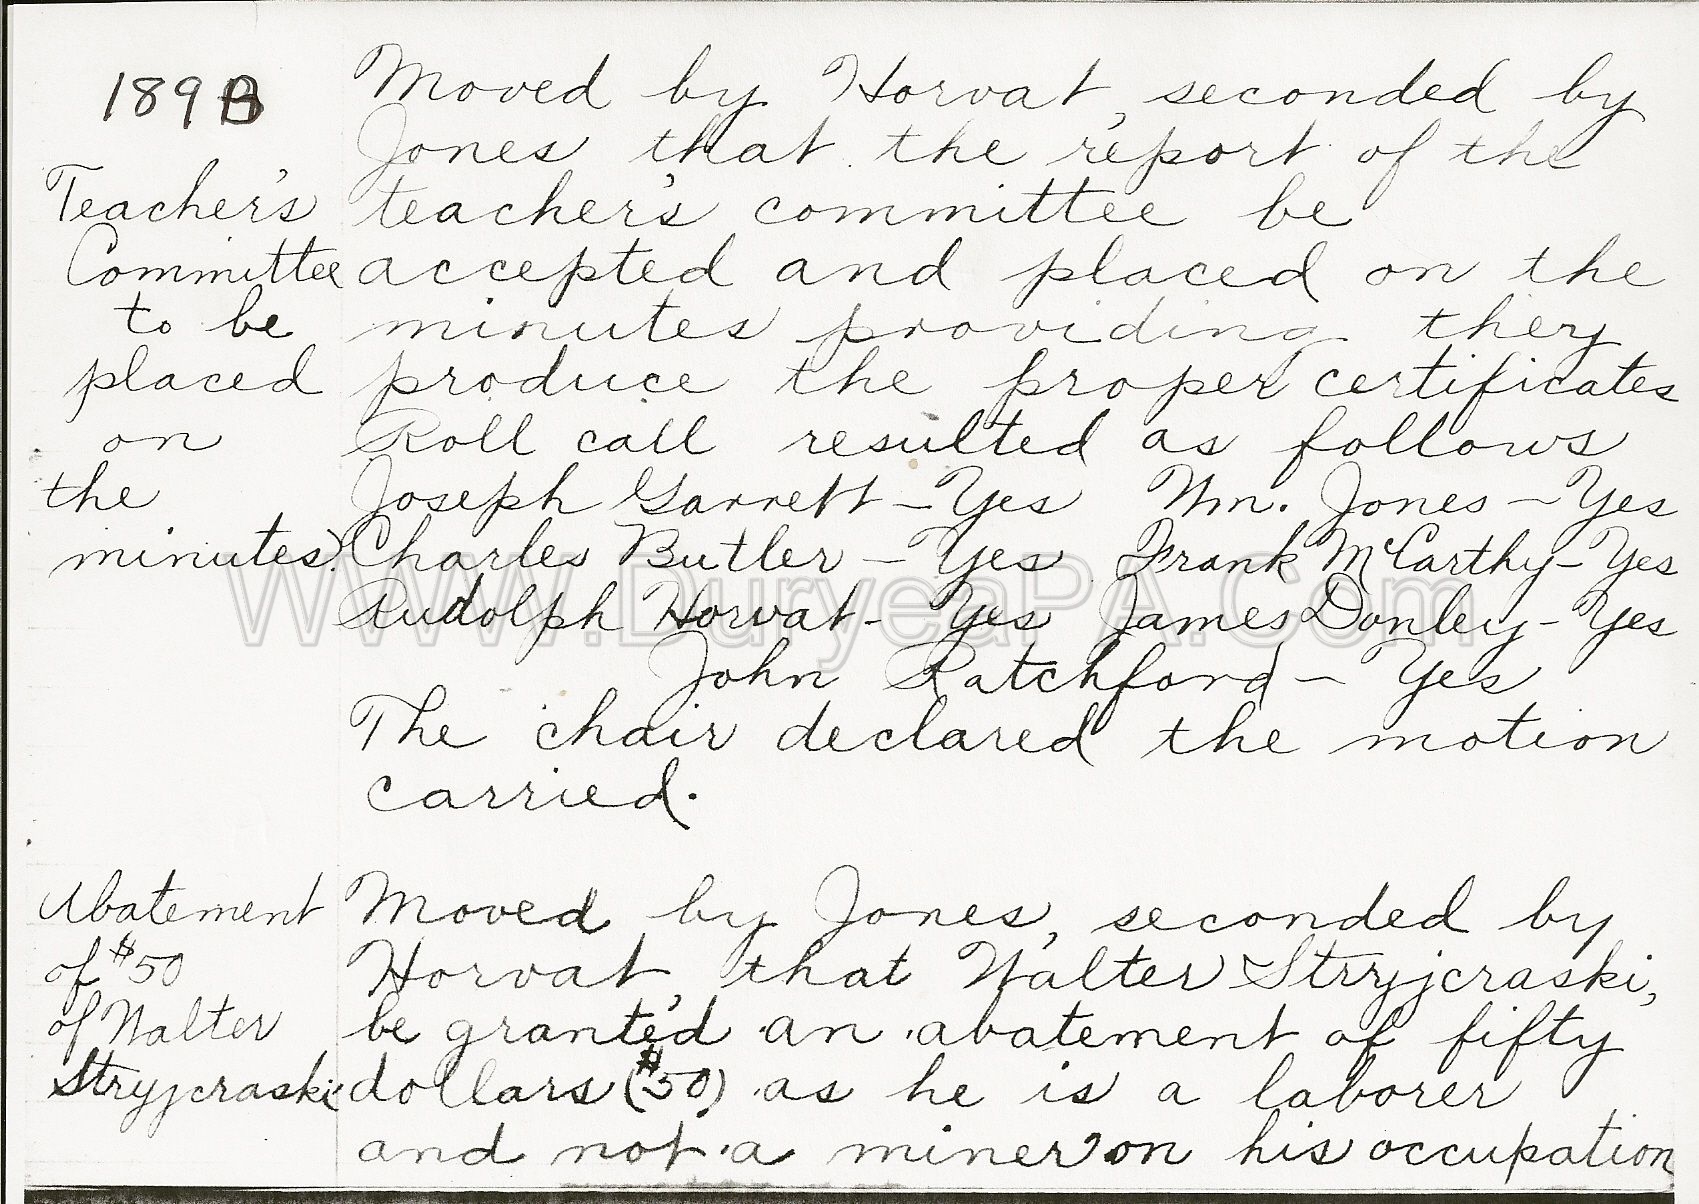 189B
Moved by Horvat, seconded by
Jones, that the report of the
Teacher's teacher's committee be
Committee accepted and placed on the
to be minutes providing they
placed produce the proper certificates
on Roll call resulted as follows
the Joseph Garrett - Yes Wm. Jones - Yes
minutes. Charles Butler - Yes Frank McCarthy - Yes
Rudolph Horvat - Yes James Donley - Yes
WWW.DuryeaPA.Com
John Ratchford - Yes
The chair declared the motion
carried.
Abatement Moved by Jones, seconded by
of $50 Horvat, that Walter Stryjcraski,
of Walter be granted an abatement of fifty
Stryjcraski dollars ($50) as he is a laborer
and not a miner on his occupation